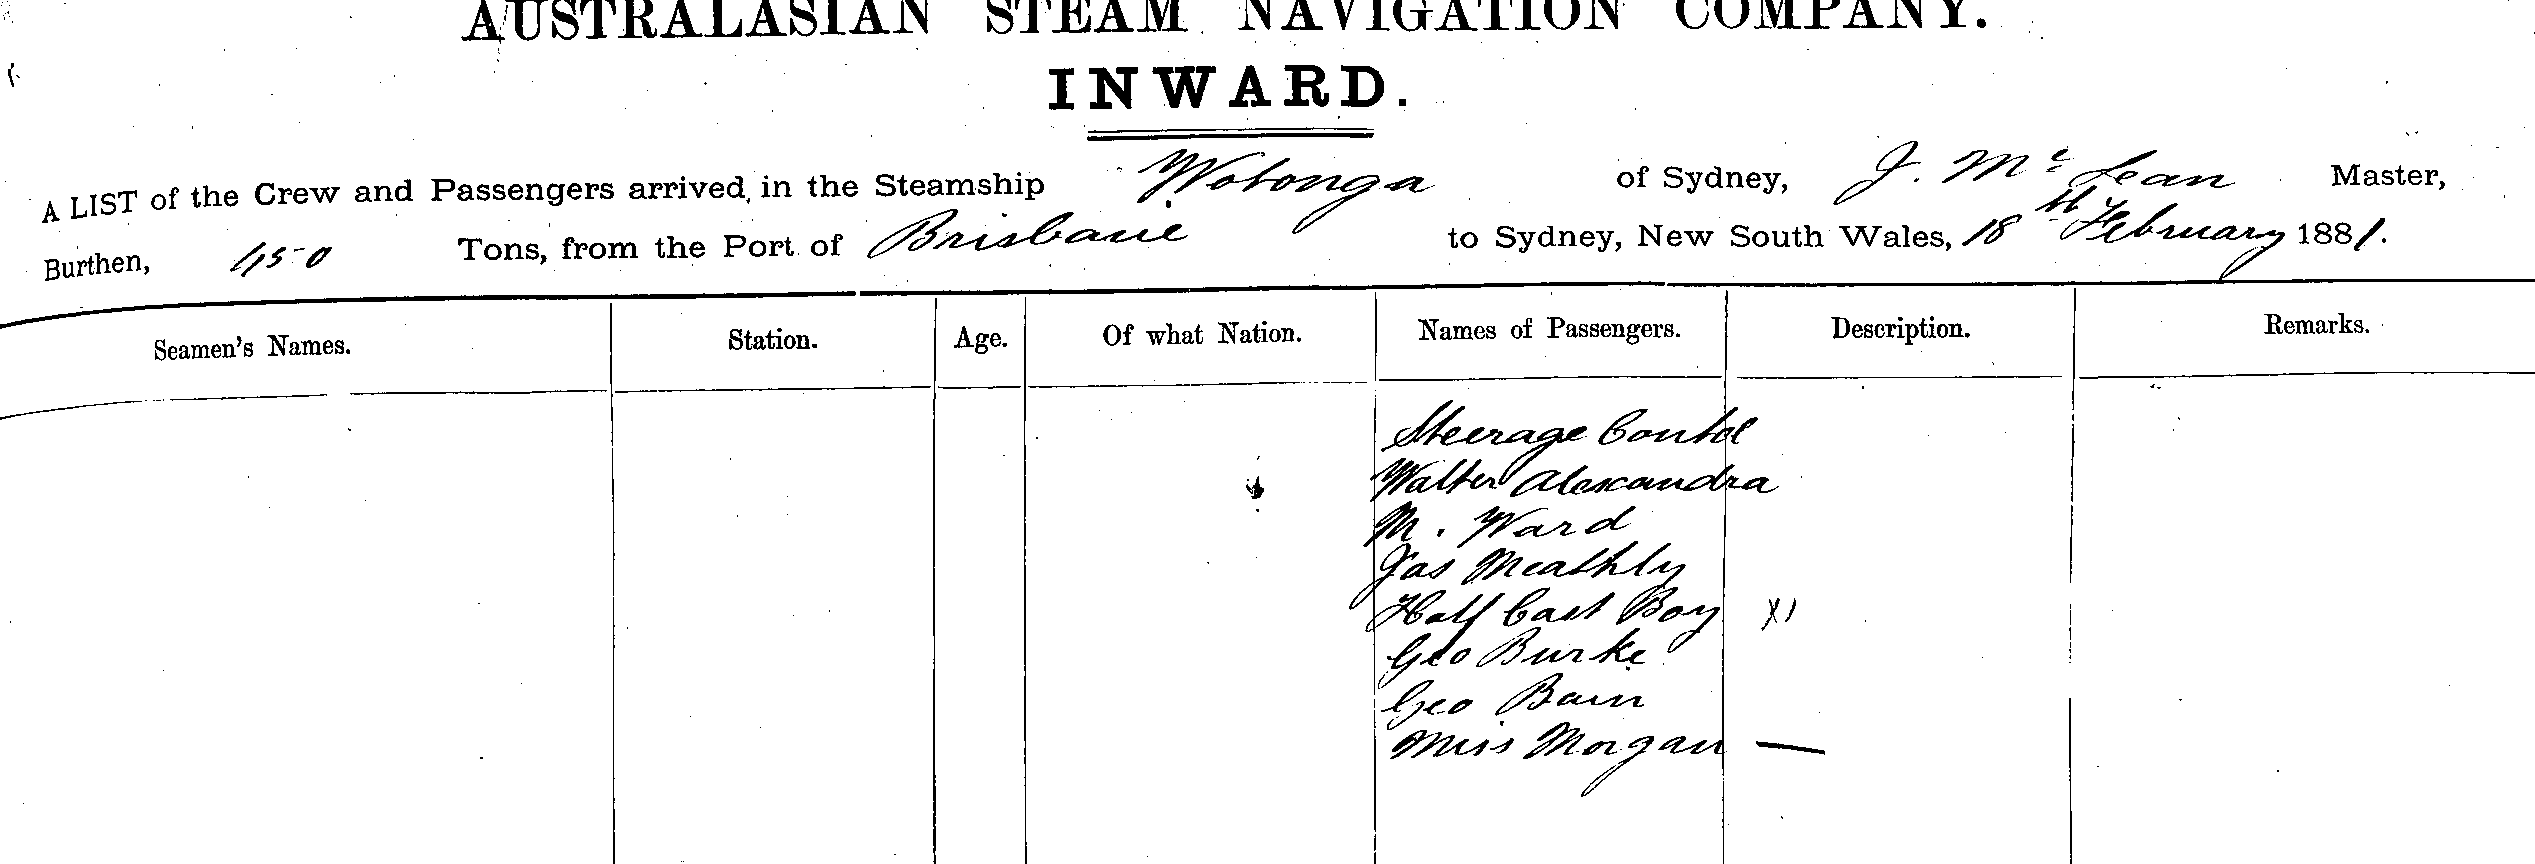 AUSTRALASIAN STEAM NAVIGATION COMPANY.
INWARD.
A LIST of the Crew and Passengers arrived, in the Steamship Wotonga of Sydney, J. Mc Lean Master,
Burthen, 450 Tons, from the Port of Brisbane to Sydney, New South Wales, 18th February 1881.
Seamen's Names. Station. Age. Of what Nation. Names of Passengers. Description. Remarks.
Steerage Contd
Walter Alexandra
M. Ward
Jas Meathly
Half Cast Boy X1
Geo Burke
Geo Bain
Miss Morgan —